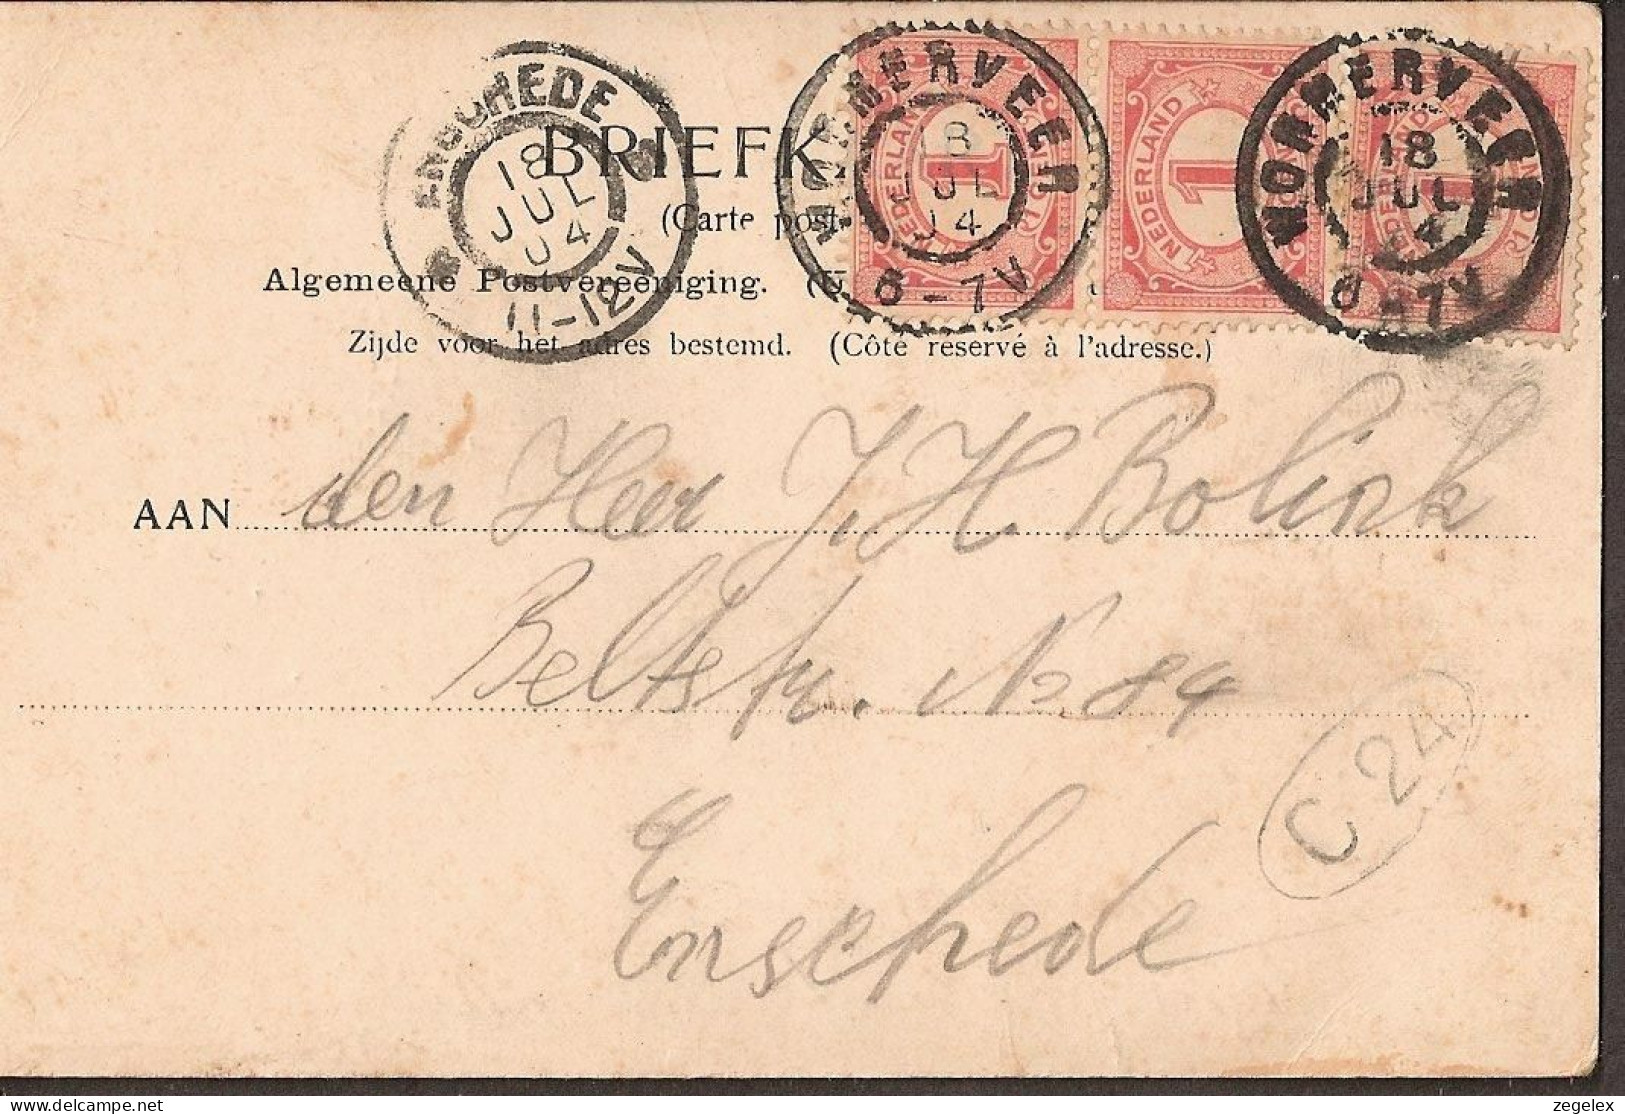 ENSCHEDE
18
JUL
04
11-12V
WORMERVEER
18
JUL
04
6-7V
NEDERLAND
1
1 CENT
NEDERLAND
1
WORMERVEER
18
JUL
04
6-7V
NEDERLAND
1
BRIEFK
(Carte post
Algemeene Postvereeniging. (U
Zijde voor het adres bestemd. (Côté réservé à l'adresse.)
AAN den Heer J. H. Bolink
Beltstr. No 84
Enschede
C 24
zegelex